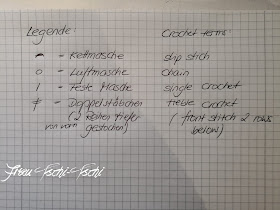 Legende: Crochet terms:
- Kettmasche slip stich
o - Luftmasche chain
I - Feste Masche single crochet
‡ - Doppelstäbchen treble crochet
(2 Reihen tiefer (front stitch 2 rows
von vorn gestochen) below)
Frau Tschi-Tschi